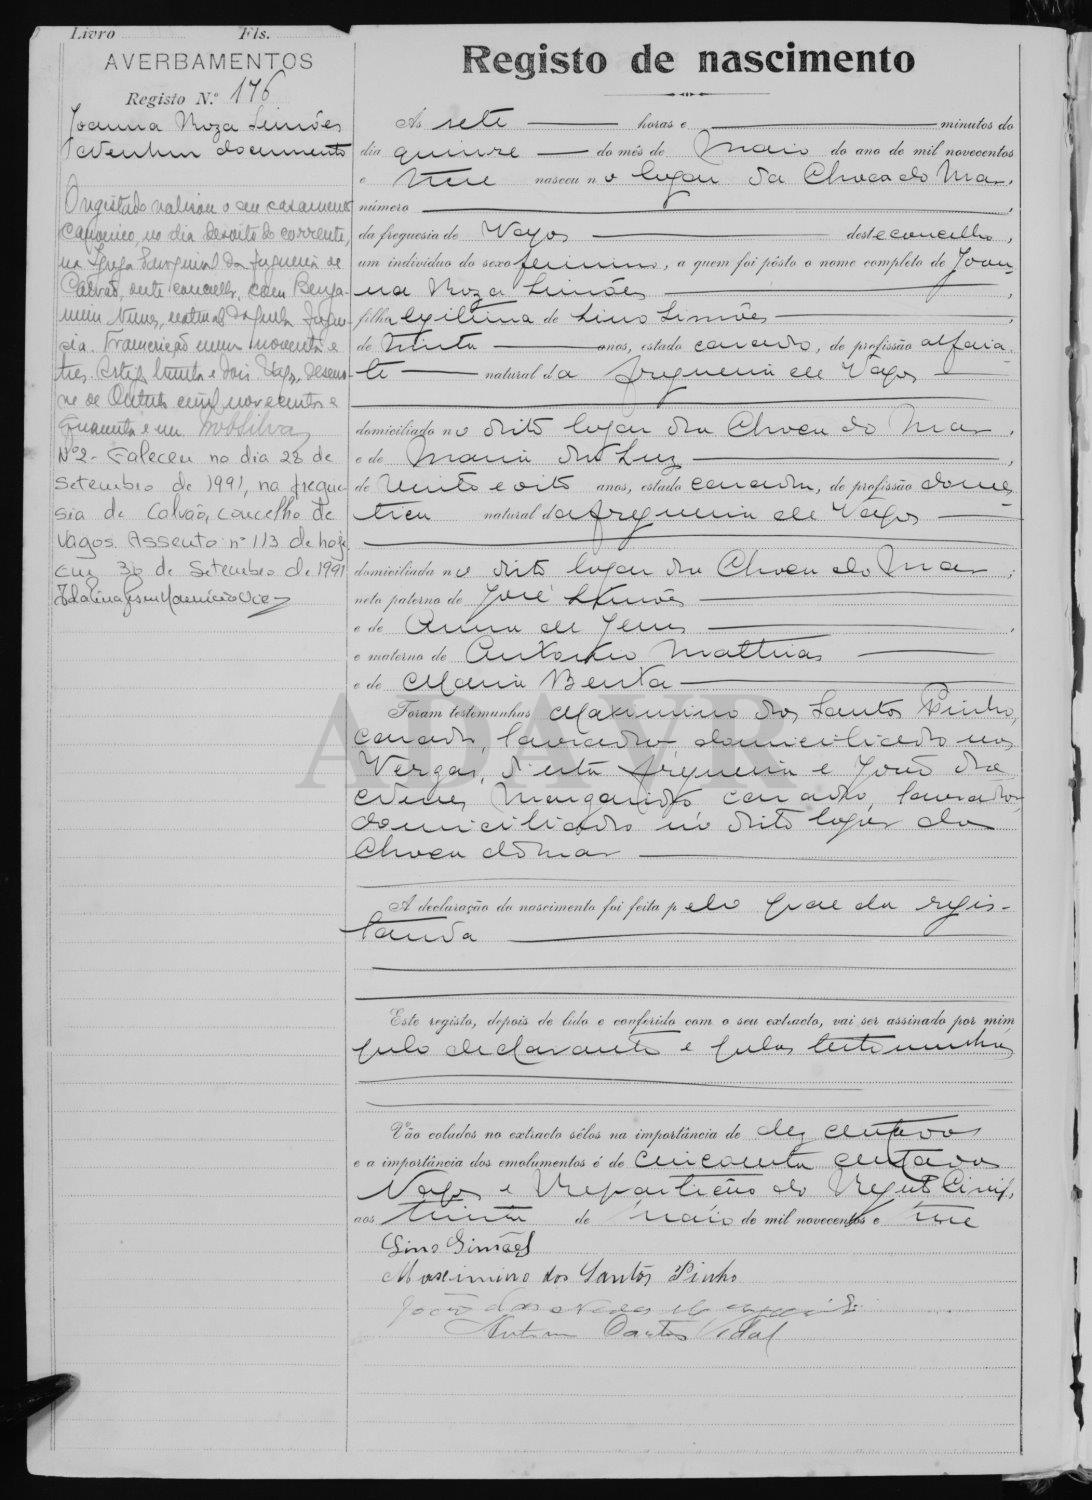 Livro Fls.
AVERBAMENTOS
Registo N.º 176
Joanna Roza Simões
Nenhum documento
O registado realisou o seu casamento
canonico, no dia desoito do corrente,
na Igreja Paroquial da freguesia de
Calvão, deste concelho, com Benja-
mim Nunes, natural daquela fregue-
sia. Transcrição numero noventa e
tres. Artigo trinta e dois. Vagos, deseno-
ve de Outubro mil novecentos e
quarenta e um.
Nº 2 - Faleceu no dia 28 de
Setembro de 1991, na fregue-
sia de Calvão, concelho de
Vagos. Assento nº 113 de hoje
Em 30 de Setembro de 1991
Registo de nascimento
Ás sete horas e minutos do
dia quinze do mês de Maio do ano de mil novecentos
e treze nasceu no lugar da Choca do Mar,
número
da freguesia de Vagos deste concelho,
um indivíduo do sexo feminino, a quem foi pôsto o nome completo de Joan-
na Roza Simões
filha legitima de Lino Simões
de trinta anos, estado casado, de profissão alfaia-
te natural da freguesia de Vagos
domiciliado no dito lugar da Choca do Mar,
e de Maria da Luz
de vinte e oito anos, estado casada, de profissão domes-
tica natural da freguesia de Vagos
domiciliada no dito lugar da Choca do Mar;
neto paterno de José Simões
e de Anna de Jesus
e materno de Antonio Mathias
e de Maria Benta
Foram testemunhas Maximino dos Santos Pinho,
casado, lavrador, domiciliado nas
Vergas, d'esta freguesia e João das
Neves Margarido casado, lavrador,
domiciliado no dito lugar da
Choca do Mar
A declaração do nascimento foi feita pelo pae da regis-
tanda
Este registo, depois de lido e conferido com o seu extracto, vai ser assinado por mim
pelo declarante e pelas testemunhas
Vão colados no extracto sêlos na importância de dez centavos
e a importância dos emolumentos é de cincoenta centavos
Vagos e Repartição do Registo Civil,
aos trinta de Maio de mil novecentos e treze
Lino Simões
Maximino dos Santos Pinho
João das Neves Margarido
Vidal
ADAVR